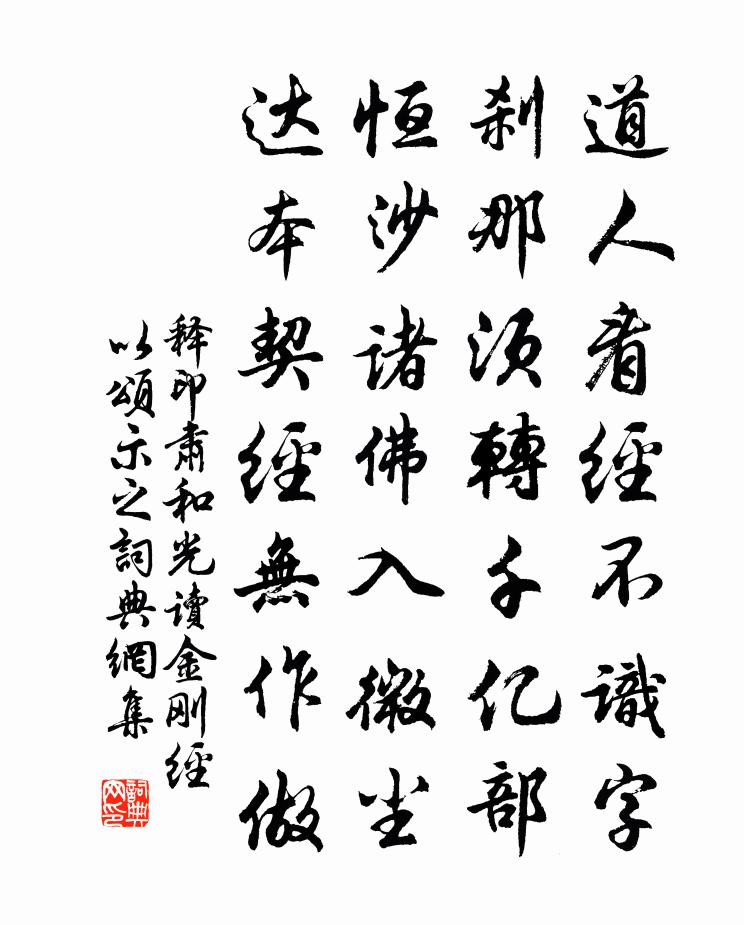 道人看经不識字
刹那须轉千亿部
恒沙諸佛入微尘
达本契经無作做
释印肃和光讀金刚经
以頌示之詞典網集